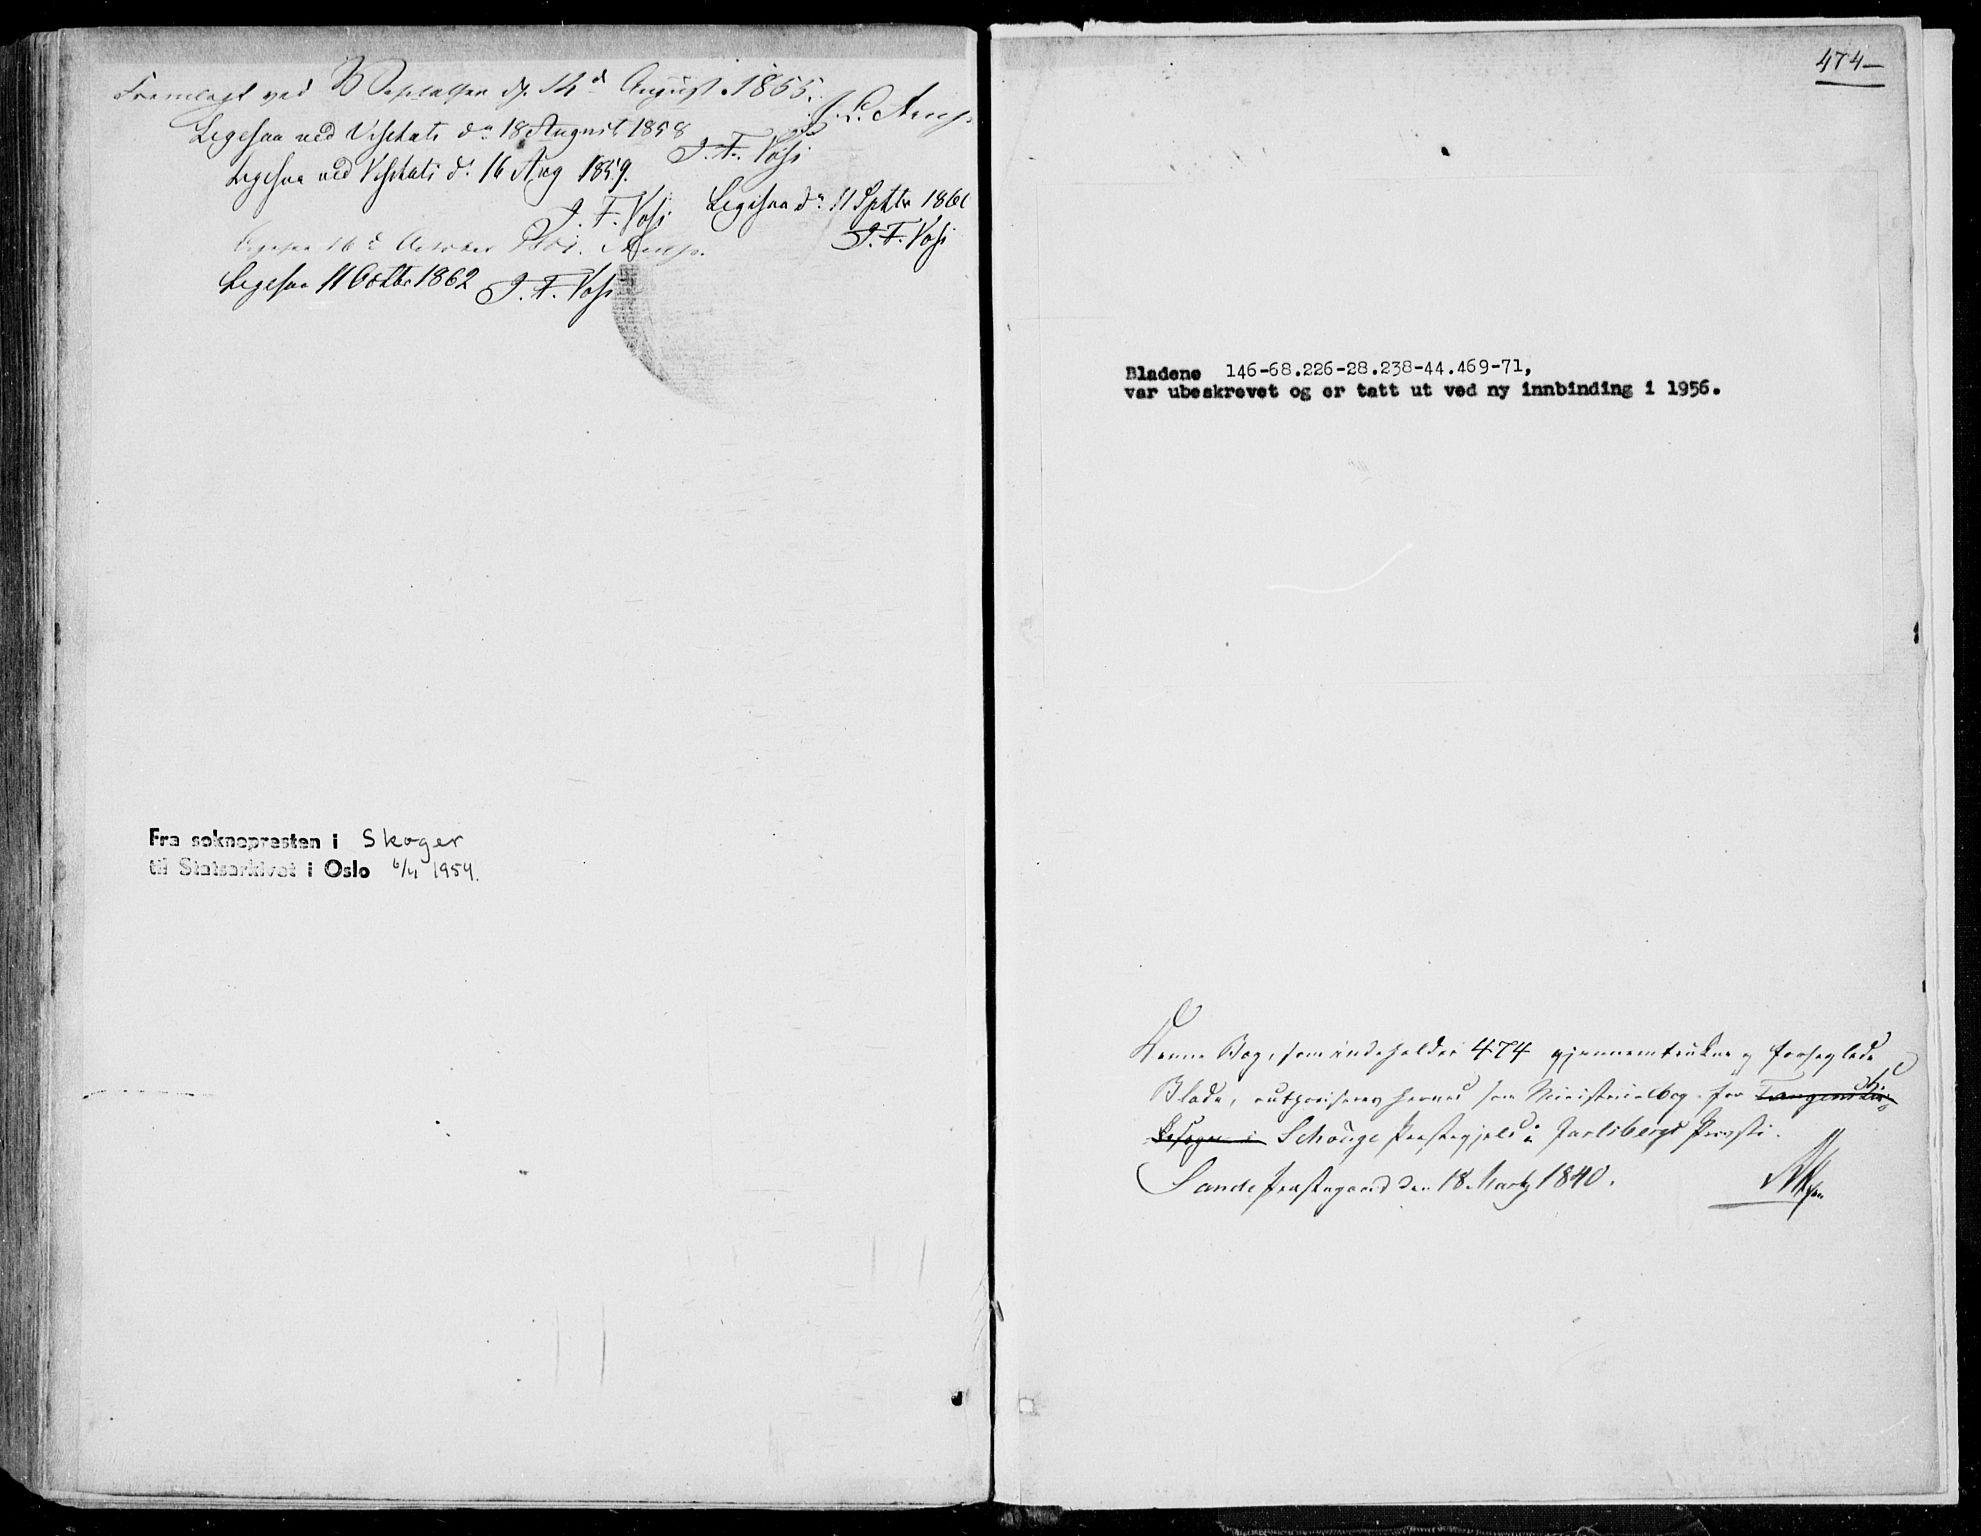 Fremlagt ved Visitatsen d. 14d August 1855.
Ligesaa ved Visitats dn 18 August 1858
J. F. Voss
Ligesaa ved Visitats d: 16 Aug 1859.
J. F. Voss
Ligesaa dn 11 Sptbr 186
J. F. Voss
16d October
Ligesaa 11 Octbr 1862 J. F. Voss
Fra soknepresten i Skoger
til Statsarkivet i Oslo 6/4 1954.
474-
Bladene 146-68.226-28.238-44.469-71,
var ubeskrevet og er tatt ut ved ny innbinding i 1956.
Denne Bog, som indeholder 474 gjennemtrukne og forseglede
Blade, authoriseres herved som Ministerialbog for Tangens Kir-
kesogn i Schouge Præstegjeld i Jarlsbergs Provsti.
Sande Præstegaard den 18 Marts 1840.